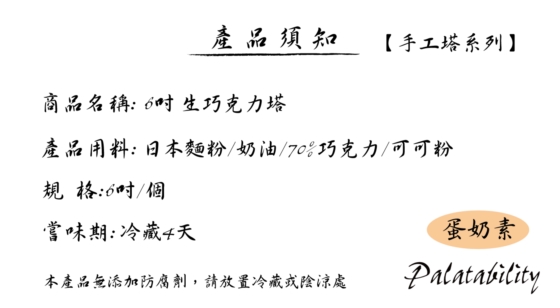 產品須知 【手工塔系列】
商品名稱: 6吋生巧克力塔
產品用料: 日本麵粉/奶油/70%巧克力/可可粉
規 格:6吋/個
嘗味期:冷藏4天
蛋奶素
本產品無添加防腐劑，請放置冷藏或陰涼處
Palatability